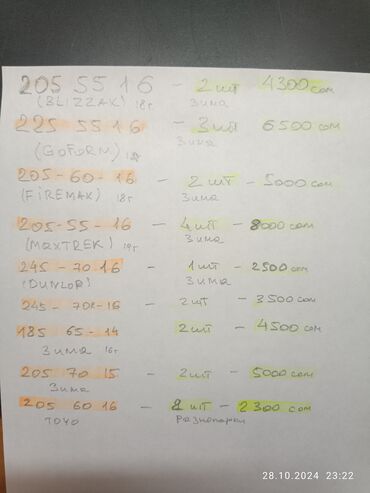 205 55 16 - 2 шт 4300 сом
(BLIZZAK) 18г зима
225-55 16 - 3 шт 6500 сом
(GOFORM) зима
205-60-16 - 2 шт - 5000 сом
(FiREMAX) 18г зима
205-55-16 - 4 шт - 8000 сом
(MAXTREK) 19г зима
245-70 16 - 1 шт - 2500 сом
(DUNLOP) зима
245-70R-16 - 2 шт - 3500 сом
185 65-14 2 шт - 4500 сом
зима 16г
205 70 15 - 2 шт - 5000 сом
зима
205 60 16 - шт - 2300 сом
TOYO разнопарки
28.10.2024 23:22